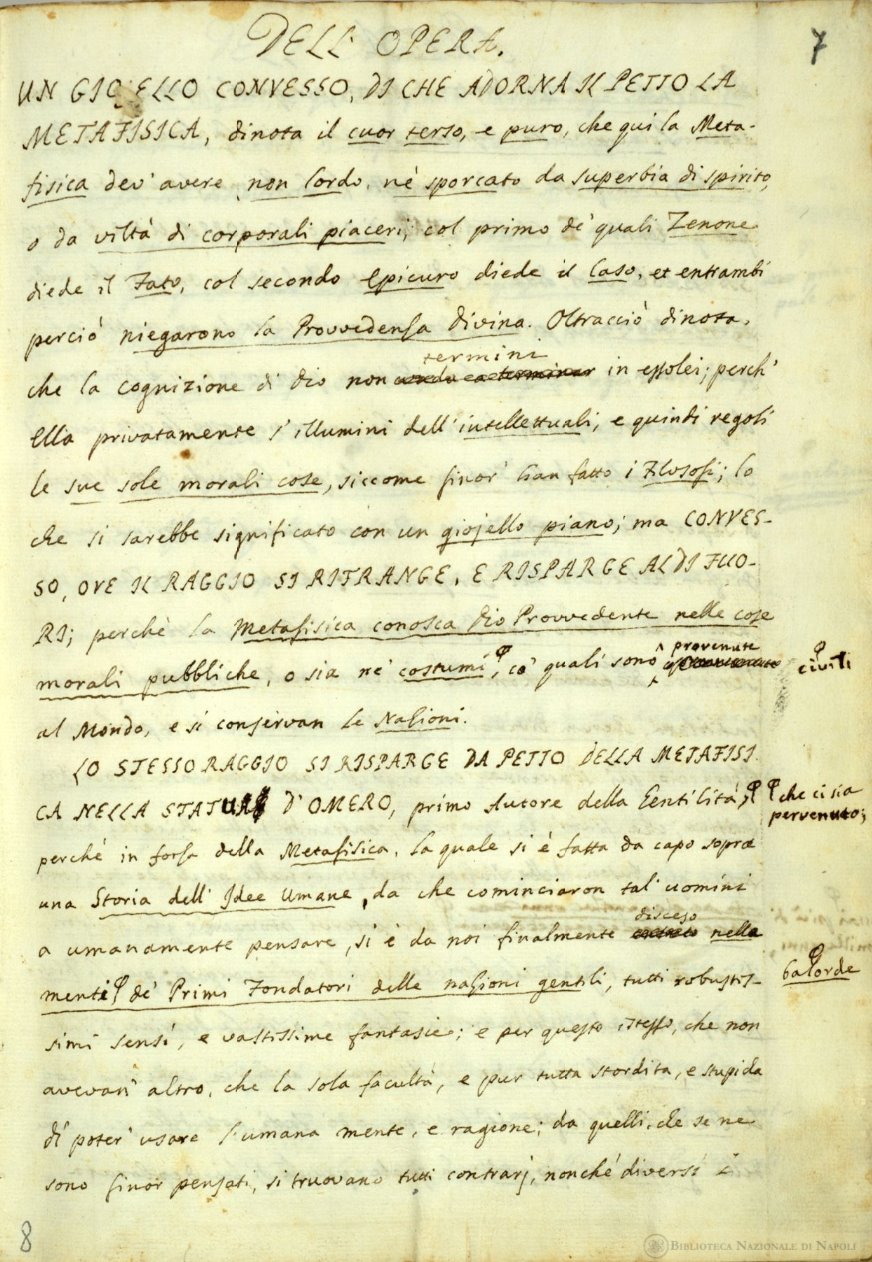 DELL' OPERA.
7
UN GIOJELLO CONVESSO, DI CHE ADORNA IL PETTO LA
METAFISICA, dinota il cuor terso, e puro, che qui la Meta-
fisica dev' avere, non lordo, nè sporcato da superbia di spirito,
o da viltà di corporali piaceri; col primo de' quali Zenone
diede il Fato, col secondo Epicuro diede il Caso, et entrambi
perciò niegarono la Provvedenza Divina. Oltracciò dinota,
termini
che la cognizione di Dio non in essolei; perch'
Ella privatamente s' illumini dell' intellettuali, e quindi regoli
le sue sole morali cose, siccome finor' han fatto i Filosofi; lo
che si sarebbe significato con un giojello piano; ma CONVES-
SO, OVE IL RAGGIO SI RIFRANGE, E RISPARGE AL DI FUO-
RI; perchè la Metafisica conosca Dio Provvedente nelle cose
provenute
morali pubbliche, o sia ne' costumi, co' quali sono
civili
al Mondo, e si conservan le Nazioni.
LO STESSO RAGGIO SI RISPARGE DA PETTO DELLA METAFISI-
CA NELLA STATUA D' OMERO, primo Autore della Gentilità,
che ci sia
pervenuto;
perchè in forza della Metafisica, la quale si è fatta da capo sopra
una Storia dell' Idee Umane, da che cominciaron tal' uomini
disceso
a umanamente pensare, si è da noi finalmente nelle
menti de' Primi Fondatori delle nazioni gentili, tutti robustis-
balorde
simi sensi, e vastissime fantasie; e per questo istesso, che non
avevan' altro, che la sola facultà, e pur tutta stordita, e stupida
di poter' usare l' umana mente, e ragione; da quelli, che se ne
sono finor pensati, si truovano tutti contrarj, nonchè diversi i
8
BIBLIOTECA NAZIONALE DI NAPOLI